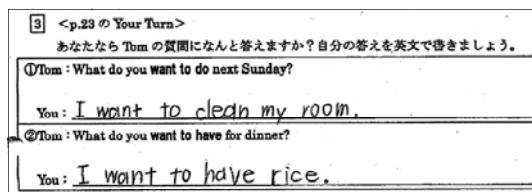 3 <p.23 の Your Turn>
あなたなら Tom の質問になんと答えますか？自分の答えを英文で書きましょう。
①Tom : What do you want to do next Sunday?
You : I want to clean my room.
②Tom : What do you want to have for dinner?
You : I want to have rice.